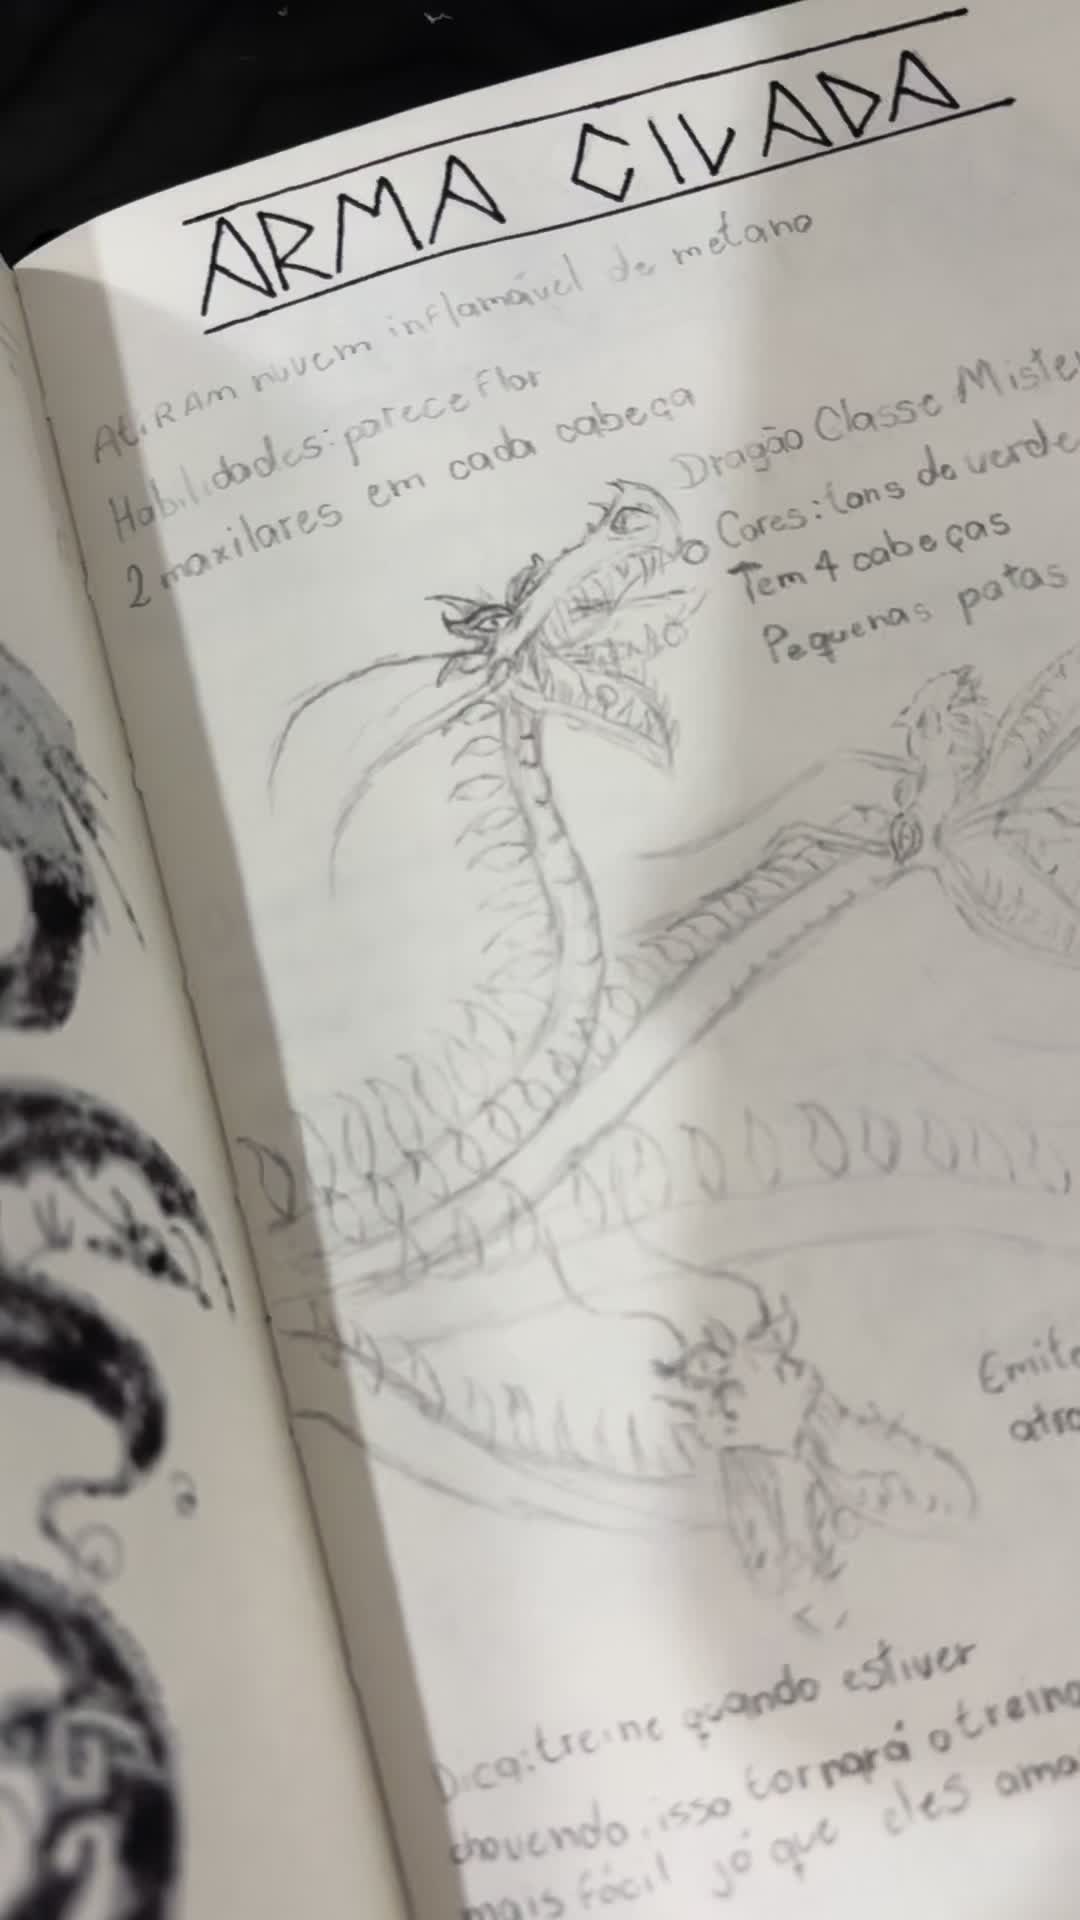 ARMA CILADA
AtiRAm nuvem inflamável de metano
Habilidades: parece Flor
2 maxilares em cada cabeça
Dragão Classe Miste
Cores: tons de verde
Tem 4 cabeças
Pequenas patas
Emite
atra
Dica: treine quando estiver
chovendo, isso tornará o treino
mais fácil já que eles ama